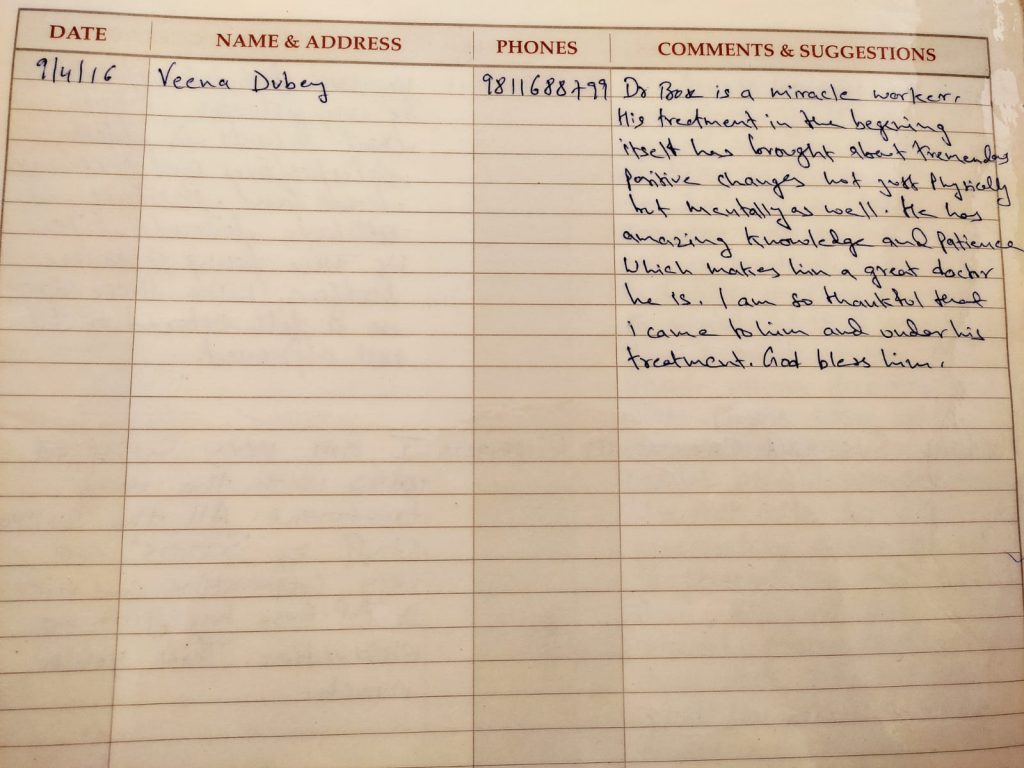 DATE NAME & ADDRESS PHONES COMMENTS & SUGGESTIONS
9/4/16 Veena Dubey 9811688799 Dr Bose is a miracle worker.
His treatment in the begening
itself has brought about tremendos
positive changes not just physically
but mentally as well. He has
amazing knowledge and patience
which makes him a great doctor
he is. I am so thankful that
i came to him and under his
treatment. God bless him.